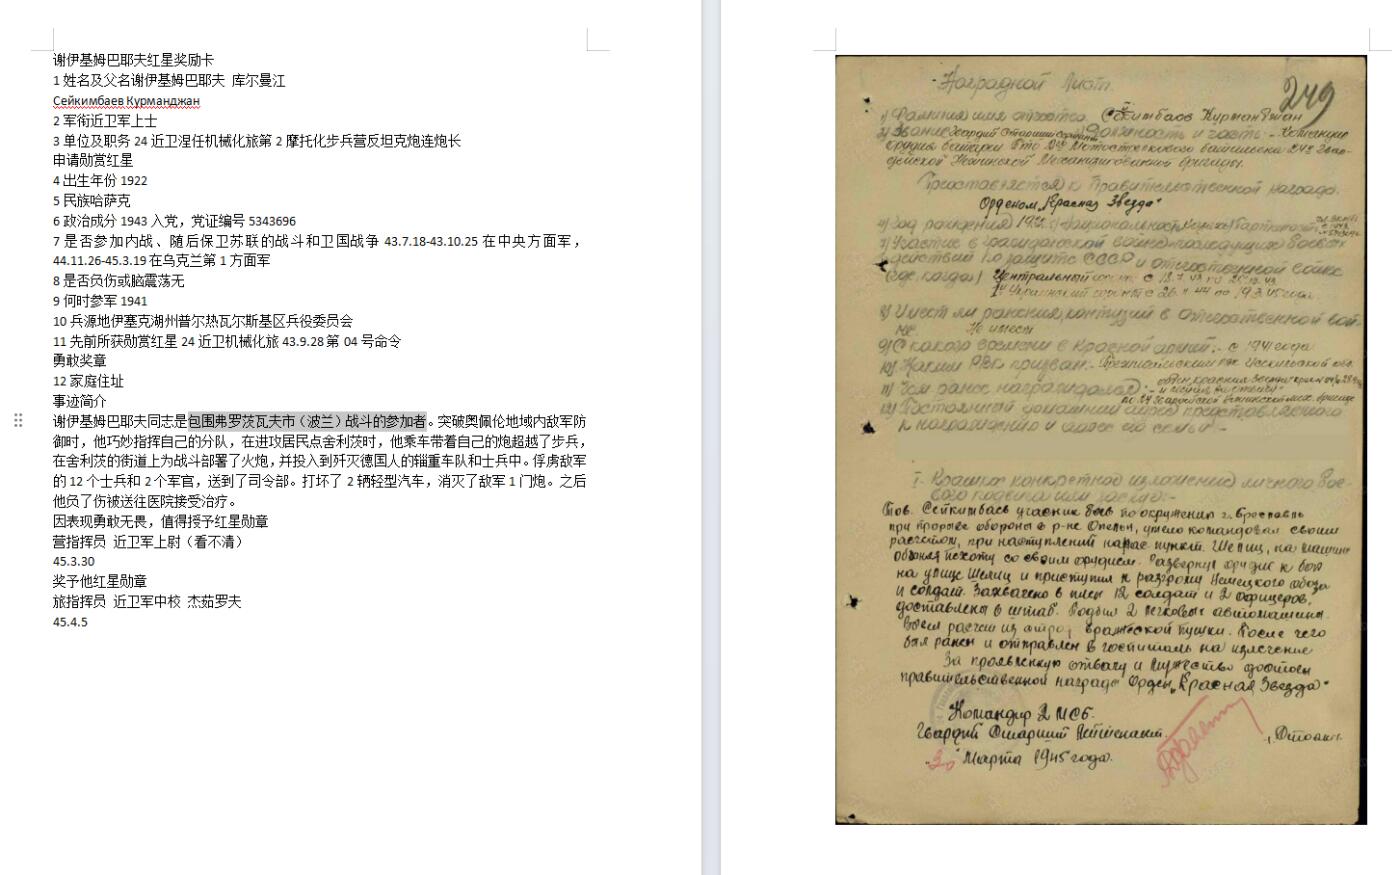 谢伊基姆巴耶夫红星奖励卡
1 姓名及父名谢伊基姆巴耶夫 库尔曼江
Сейкимбаев Курманджан
2 军衔近卫军上士
3 单位及职务 24 近卫涅任机械化旅第 2 摩托化步兵营反坦克炮连炮长
申请勋赏红星
4 出生年份 1922
5 民族哈萨克
6 政治成分 1943 入党，党证编号 5343696
7 是否参加内战、随后保卫苏联的战斗和卫国战争 43.7.18-43.10.25 在中央方面军，
44.11.26-45.3.19 在乌克兰第 1 方面军
8 是否负伤或脑震荡无
9 何时参军 1941
10 兵源地伊塞克湖州普尔热瓦尔斯基区兵役委员会
11 先前所获勋赏红星 24 近卫机械化旅 43.9.28 第 04 号命令
勇敢奖章
12 家庭住址
事迹简介
谢伊基姆巴耶夫同志是包围弗罗茨瓦夫市（波兰）战斗的参加者。突破奥佩伦地域内敌军防
御时，他巧妙指挥自己的分队，在进攻居民点舍利茨时，他乘车带着自己的炮超越了步兵，
在舍利茨的街道上为战斗部署了火炮，并投入到歼灭德国人的辎重车队和士兵中。俘虏敌军
的 12 个士兵和 2 个军官，送到了司令部。打坏了 2 辆轻型汽车，消灭了敌军 1 门炮。之后
他负了伤被送往医院接受治疗。
因表现勇敢无畏，值得授予红星勋章
营指挥员 近卫军上尉（看不清）
45.3.30
奖予他红星勋章
旅指挥员 近卫军中校 杰茹罗夫
45.4.5
Наградной Лист.
249
1) Фамилия имя отчество Сейкимбаев Курманджан
2) Звание Гвардии Старший Сержант Должность и часть:- Командир
орудия батареи Пто 2го Мотострелкового батальона 24й Гвар-
дейской Нежинской Механизированной бригады.
Представляется к Правительственной награде
Орденом „Красная Звезда"
4) Год рождения 5) Национальность
7) Участие в гражданской войне последующих боевых
действий по защите СССР и отечественной войне
(где, когда) Центральный фронт с 18.7.43 по 25.10.43
1й Украинский фронт с 26.11.44 по 19.3.45 года.
8) Имеет ли ранения, контузии в Отечественной вой-
не. Не имеет
9) С какого времени в Красной армии:- с 1941 года
10) Каким РВК призван:-
11) Чем ранее награждался:-
12) Постоянный домашний адрес представляемого
к награждению и адрес его семьи:-
I- Краткое конкретное изложение личного бое-
вого подвига или заслуг:-
Тов. Сейкимбаев участник боев по окружению г. Бреславль
при прорыве обороны в р-не Опельн, умело командовал своим
расчетом, при наступлении на нас. пункт. Шелиц, на машине
обгоняя пехоту со своим орудием. Развернул орудие к бою
на улице Шелиц и приступил к разгрому Немецкого обоза
и солдат. Захвачено в плен 12 солдат и 2 офицеров,
доставлены в штаб. Подбил 2 легковых автомашины
расчет из вражеской пушки. После чего
был ранен и отправлен в госпиталь на излечение
За проявленную отвагу и мужество достоен
правительственной награде Орден „Красная Звезда"
Командир 2 МСБ.
Гвардии Старший Лейтенант.
"30" Марта 1945 года.